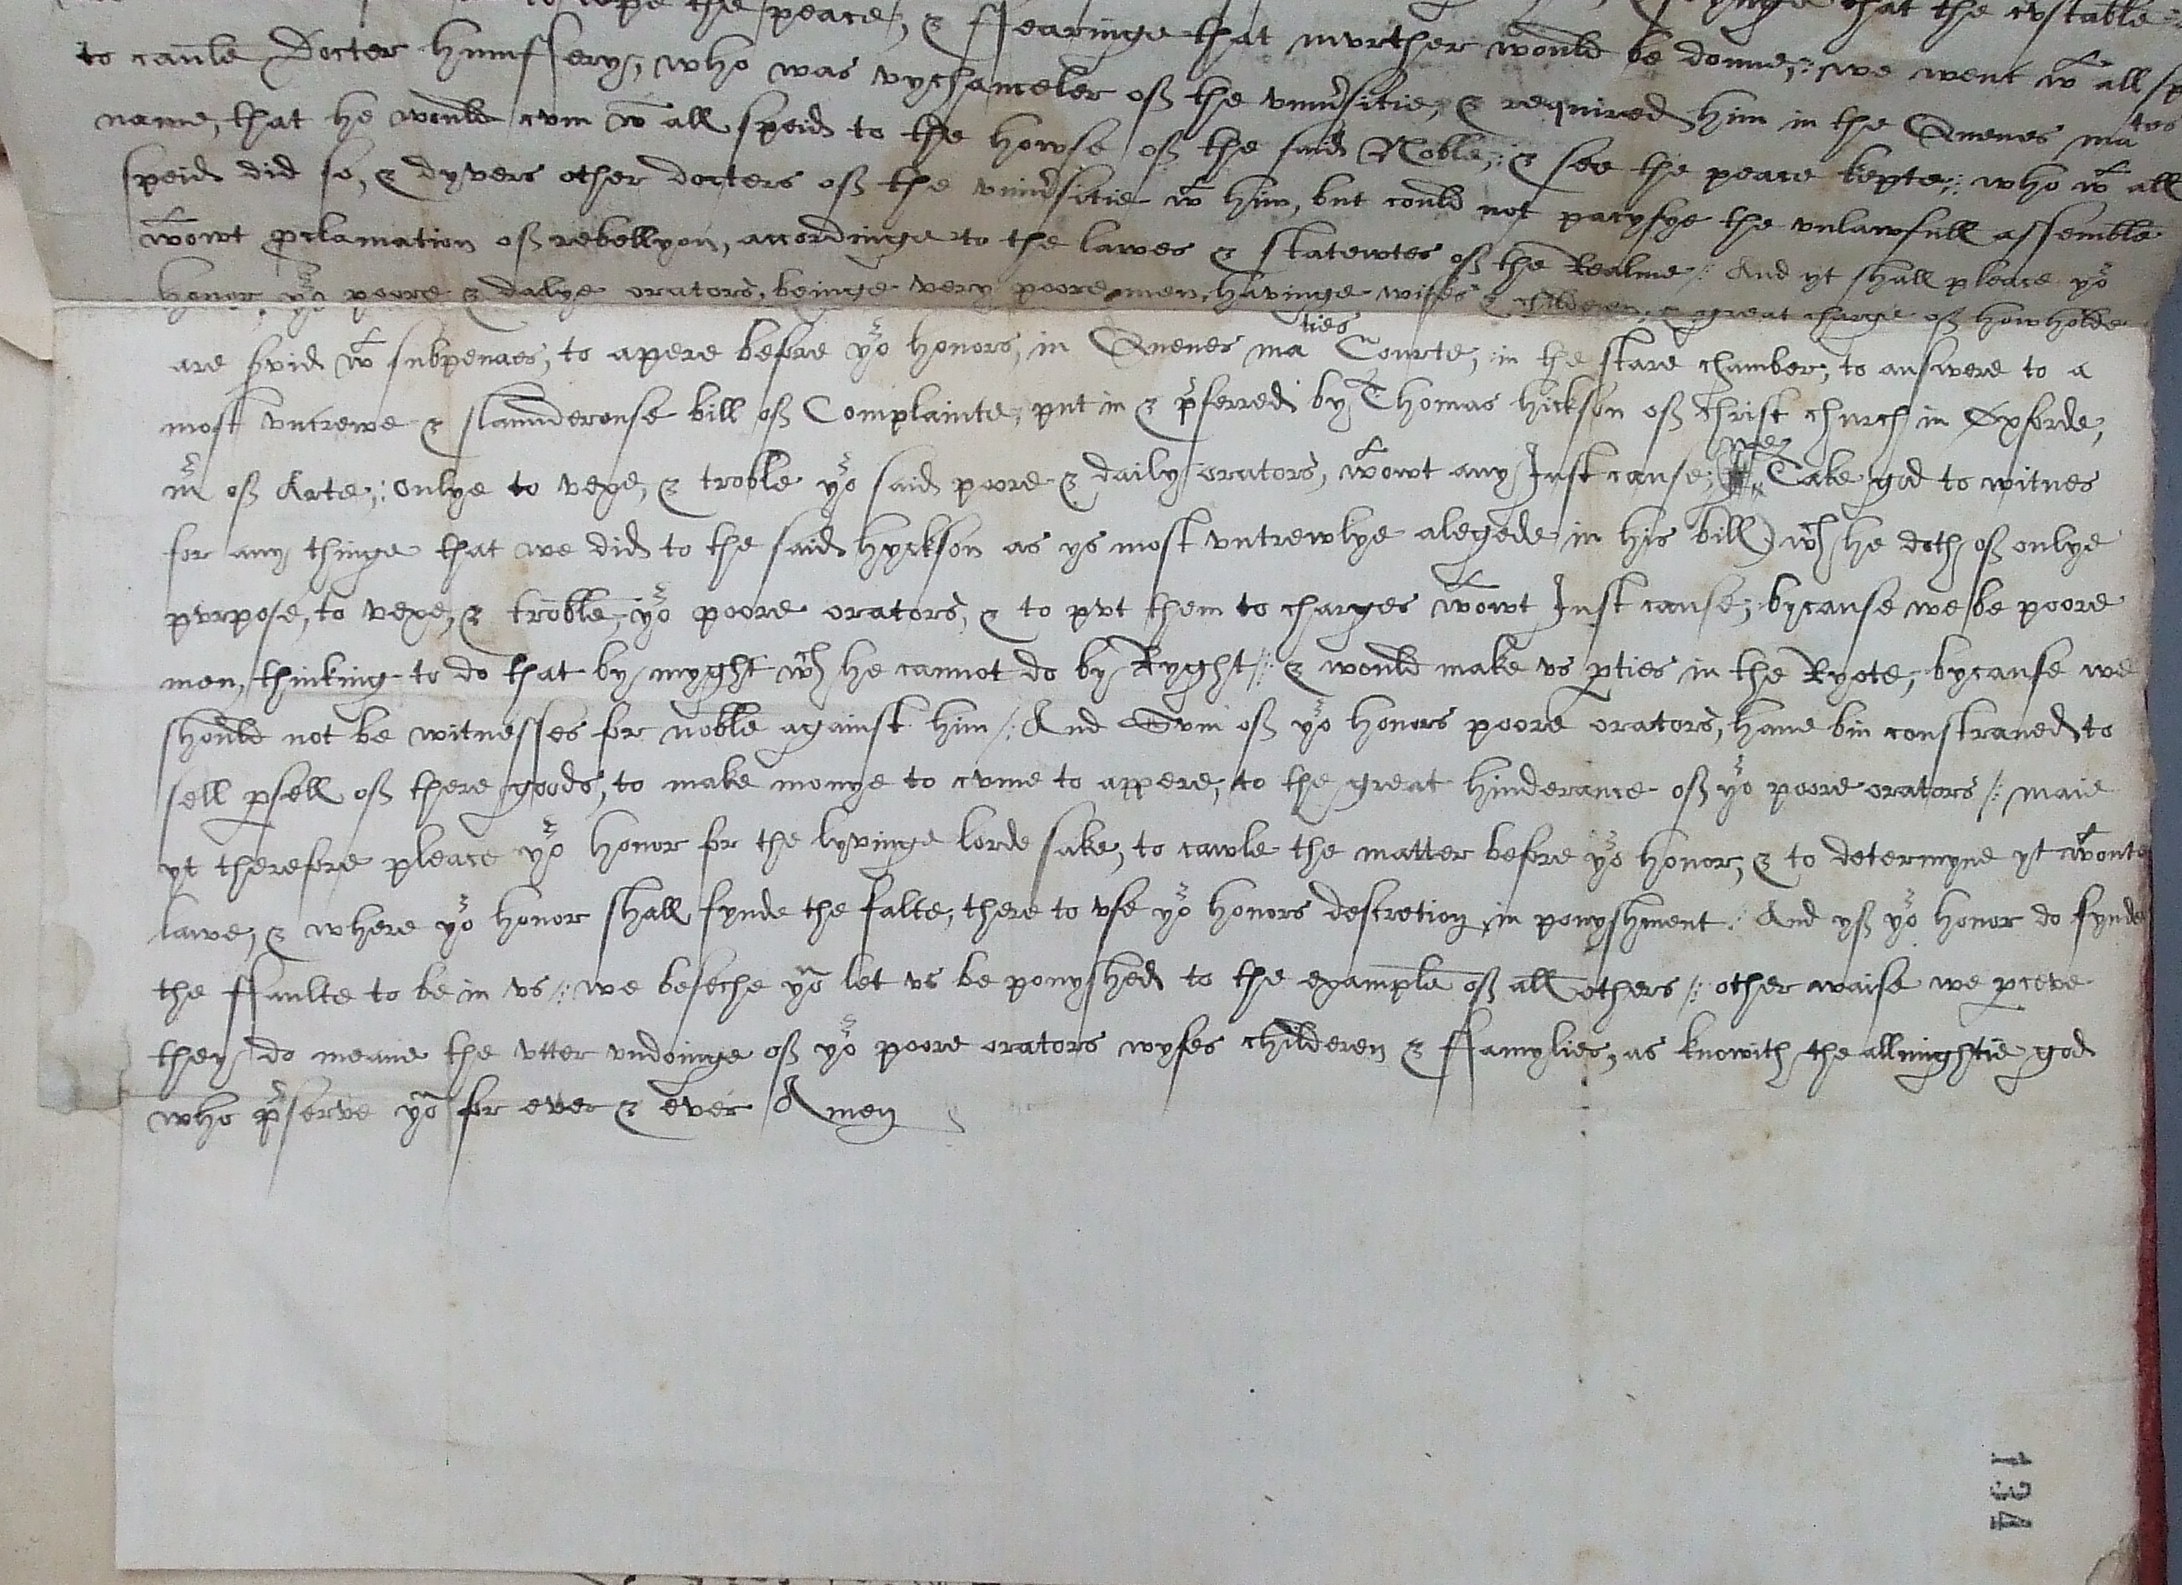 to kepe the peace, & ffearinge that murther would be donne, we went wt all sp
to caule Docter Humffery, who was vychanceler off the universitie, & required him in the Quenes maties
name, that he would cum wt all speid to the howse off the said Noble, & see the peace kepte, who wt all
speid did so, & dyvers other docters off the universitie wt him, but could not pacyfye the unlawfull assemble
wtowt proclamation off rebellyon, accordinge to the lawes & statewtes off the Realme / And yt shall pleace yor
honor yor poore & dalye orators, beinge very poore men, havinge wifes & childeren, & great charge off howholde
are srvid wt subpenaes, to apere before yor honors, in Quenes maties Courte, in the stare chamber, to answere to a
most untrewe & slaunderouse bill off Complainte, put in & prferred by Thomas Hickson off Christ church in Oxforde,
mr off Arte, onlye to vexe, & troble yor said poore & daily orators, wtowt any Just cause, (we Take god to witnes
for any thinge that we did to the said Hyckson as ys most untrewlye alegede in his bill) wch he doth off onlye
purpose, to vexe, & troble, yor poore orators, & to put them to charges wtowt Just cause, bycause we be poore
men, thinking to do that by myght wch he cannot do by Ryght / & would make us pties in the Ryote, bycause we
should not be witnesses for noble against him / And Sum off yor honors poore orators, have bin constraned to
sell psell off there goods, to make monye to cume to appere, to the great hinderance off yor poore orators / maie
yt therefore pleace yor honor for the lyvinge lorde sake, to cawle the matter before yor honor, & to determyne yt wtoute
lawe, & where yor honor shall fynde the falte, there to use yor honors descretion in ponyshment / And yff yor honor do fynde
the ffaulte to be in us / we beseche you let us be ponyshed to the example off all others / other waise we pceve
they do meane the utter undoinge off yor poore orators wyfes childeren & ffamylies, as knowith the allmightie god
who prserve you for ever & ever Amen
134